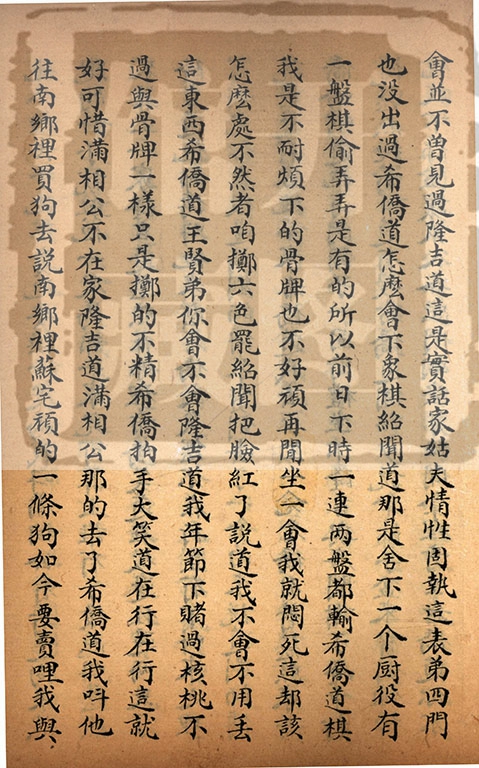 會並不曾見過隆吉道這是實話家姑夫情性固執這表弟四門
也没出過希僑道怎麽會下象棋紹聞道那是舍下一个厨役有
一盤棋偷弄弄是有的所以前日下時一連两盤都輸希僑道棋
我是不耐煩下的骨牌也不好頑再閒坐一會我就悶死這却該
怎麽處不然者咱擲六色罷紹聞把臉紅了說道我不會不用丢
這東西希僑道王賢弟你會不會隆吉道我年節下賭過核桃不
過與骨牌一樣只是擲的不精希僑拍手大笑道在行在行這就
好可惜滿相公不在家隆吉道滿相公那的去了希僑道我呌他
往南鄉裡買狗去説南鄉裡蘇宅頑的一條狗如今要賣哩我與